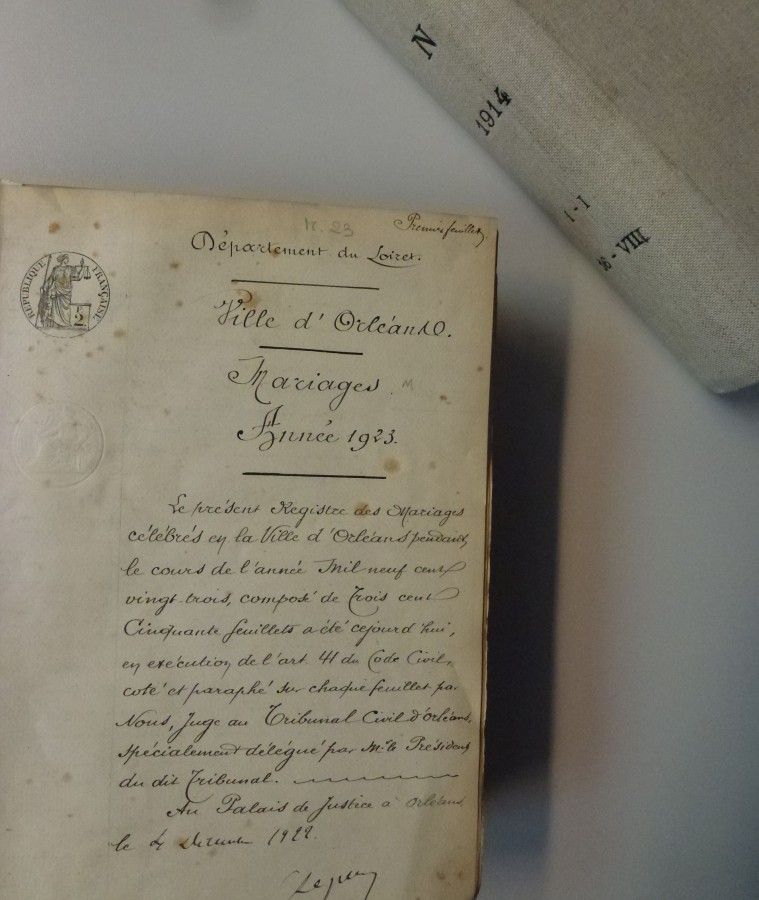 N
1914
I - I
- VIII
M. 23
Premier feuillet
Département du Loiret.
RÉPUBLIQUE FRANÇAISE
2
Ville d'Orléans.
Mariages M
Année 1923.
Le présent Registre des Mariages
célébrés en la Ville d'Orléans pendant
le cours de l'année Mil neuf cent
vingt-trois, composé de Trois cent
Cinquante feuillets a été cejourd'hui,
en exécution de l'art. 41 du Code Civil,
coté et paraphé sur chaque feuillet par
Nous, Juge au Tribunal Civil d'Orléans,
spécialement délégué par Mr le Président
du dit Tribunal.
Au Palais de Justice à Orléans
le 4 Décembre 1922.